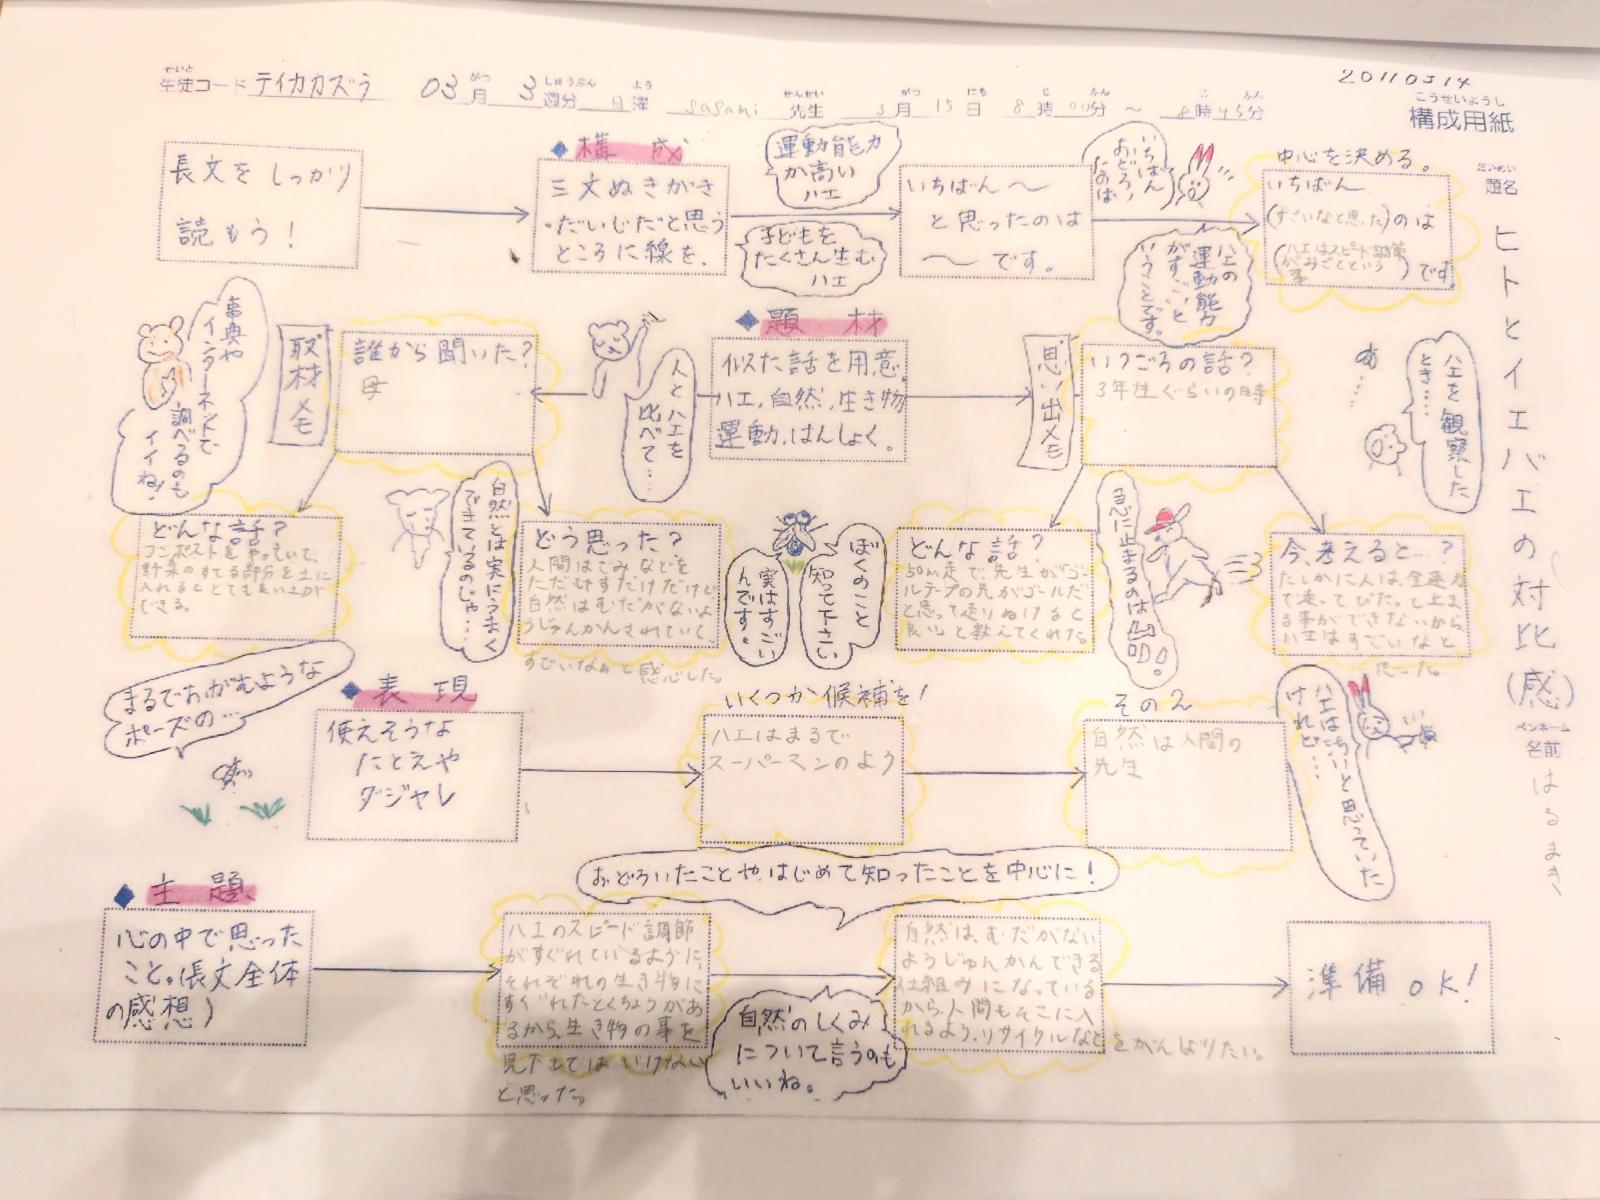 20110314
せいと がつ しゅうぶん よう せんせい がつ にち じ ふん じ ふん
生徒コード テイカカズラ 03月 3週分 日曜 sasami 先生 3月 15日 8時00分 ～ 8時45分
こうせいようし
構成用紙
だいめい
題名
ヒトとイエバエの対比(感)
ペンネーム
名前
はるまき
長文をしっかり
読もう!
◆構成
三文ぬきがき
・だいじだと思う
ところに線を、
運動能力
が高い
ハエ
子どもを
たくさん生む
ハエ
いちばん〜
と思ったのは
〜です。
いちばん
おどろい
たのは、
中心を決める。
いちばん
(すごいなと思った)のは
(ハエはスピード調節
がみごとという
事)です。
ハエの
運動能力
がすごいと
いうことです。
事典や
インターネットで
調べるのも
イイね!
取材メモ
誰から聞いた?
母
人とハエを
比べて…
◆題材
似た話を用意。
ハエ、自然、生き物
運動、はんしょく。
思い出メモ
いつごろの話?
3年生ぐらいの時
ハエを観察した
とき……
どんな話?
コンポストをやっていて、
野菜のすてる部分を土に
入れるととても良い土が
できる。
自然とは実にうまく
できているのじゃ…
どう思った?
人間はごみなどを
ただもすだけだけど
自然はむだがないよ
うじゅんかんされていて、
すごいなぁと感心した。
ぼくのこと
知って下さい
実はすごい
んです。
どんな話?
50m走で、先生がゴー
ルテープの先がゴールだ
と思って走りぬけると
良いと教えてくれた。
急に止まるのは
今、考えると…?
たしかに人は、全速力
で走ってぴたっと止ま
る事ができないから
ハエはすごいなと
思った。
まるでおがむような
ポーズの…
◆表現
使えそうな
たとえや
ダジャレ
いくつか候補を!
ハエはまるで
スーパーマンのよう
その2
自然は人間の
先生
ハエは
と思っていた
けれど…
おどろいたことや、はじめて知ったことを中心に!
◆主題
心の中で思った
こと。(長文全体
の感想)
ハエのスピード調節
がすぐれているように、
それぞれの生き物に
すぐれたとくちょうがあ
るから、生き物の事を
見下してはいけない
と思った。
自然のしくみ
について言うのも
いいね。
自然は、むだがない
ようじゅんかんできる
仕組みになっている
から、人間もそこに入
れるよう、リサイクルなどをがんばりたい。
準備OK!